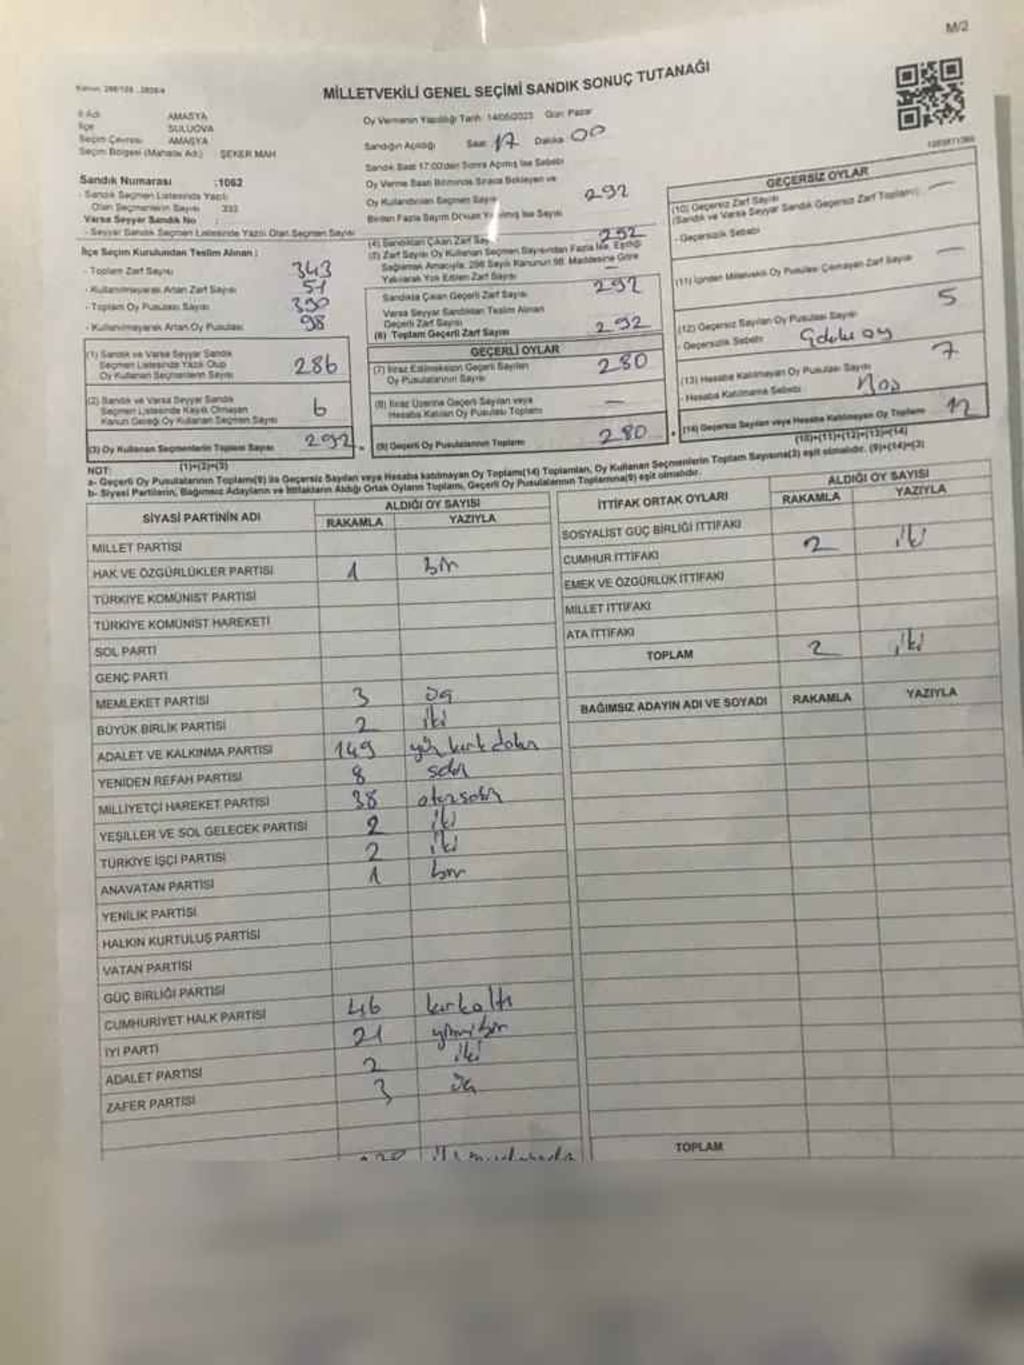 M/2
MİLLETVEKİLİ GENEL SEÇİMİ SANDIK SONUÇ TUTANAĞI
İl Adı AMASYA
İlçe SULUOVA
Seçim Çevresi AMASYA
Seçim Bölgesi (Mahalle Adı) : ŞEKER MAH
Sandık Numarası :1062
- Sandık Seçmen Listesinde Yazılı
Olan Seçmenlerin Sayısı 333
Varsa Seyyar Sandık No :
- Seyyar Sandık Seçmen Listesinde Yazılı Olan Seçmen Sayısı
Oy Vermenin Yapıldığı Tarih 14/05/2023 Gün: Pazar
Sandığın Açıldığı Saat 17 Dakika 00
Sandık Saat 17:00'den Sonra Açılmış İse Sebebi
Oy Verme Saati Bitiminde Sırada Bekleyen ve
Oy Kullandırılan Seçmen Sayısı 292
Birden Fazla Sayım Döküm Yapılmış İse Sayısı
İlçe Seçim Kurulundan Teslim Alınan :
- Toplam Zarf Sayısı 343
- Kullanılmayarak Artan Zarf Sayısı 51
- Toplam Oy Pusulası Sayısı 390
- Kullanılmayarak Artan Oy Pusulası 98
(1) Sandık ve Varsa Seyyar Sandık
Seçmen Listesinde Yazılı Olup
Oy Kullanan Seçmenlerin Sayısı 286
(2) Sandık ve Varsa Seyyar Sandık
Seçmen Listesinde Kayıtlı Olmayan
Kanun Gereği Oy Kullanan Seçmen Sayısı 6
(3) Oy Kullanan Seçmenlerin Toplam Sayısı 292
(1)+(2)=(3)
(4) Sandıktan Çıkan Zarf Sayısı 292
(5) Zarf Sayısı Oy Kullanan Seçmen Sayısından Fazla İse, Eşitliği
Sağlamak Amacıyla, 298 Sayılı Kanunun 98. Maddesine Göre
Yakılarak Yok Edilen Zarf Sayısı —
Sandıkta Çıkan Geçerli Zarf Sayısı 292
Varsa Seyyar Sandıktan Teslim Alınan
Geçerli Zarf Sayısı
(6) Toplam Geçerli Zarf Sayısı 292
GEÇERLİ OYLAR
(7) İtiraz Edilmeksizin Geçerli Sayılan
Oy Pusulalarının Sayısı 280
(8) İtiraz Üzerine Geçerli Sayılan veya
Hesaba Katılan Oy Pusulası Toplamı —
(9) Geçerli Oy Pusulalarının Toplamı 280
GEÇERSİZ OYLAR
(10) Geçersiz Zarf Sayısı
(Sandık ve Varsa Seyyar Sandık Geçersiz Zarf Toplamı) —
- Geçersizlik Sebebi
(11) İçinden Milletvekili Oy Pusulası Çıkmayan Zarf Sayısı —
(12) Geçersiz Sayılan Oy Pusulası Sayısı 5
- Geçersizlik Sebebi
(13) Hesaba Katılmayan Oy Pusulası Sayısı 7
- Hesaba Katılmama Sebebi
(14) Geçersiz Sayılan veya Hesaba Katılmayan Oy Toplamı 12
(10)+(11)+(12)+(13)=(14)
NOT:
a- Geçerli Oy Pusulalarının Toplamı(9) ile Geçersiz Sayılan veya Hesaba katılmayan Oy Toplamı(14) Toplamları, Oy Kullanan Seçmenlerin Toplam Sayısına(3) eşit olmalıdır. (9)+(14)=(3)
b- Siyasi Partilerin, Bağımsız Adayların ve İttifakların Aldığı Ortak Oyların Toplamı, Geçerli Oy Pusulalarının Toplamına(9) eşit olmalıdır.
SİYASİ PARTİNİN ADI ALDIĞI OY SAYISI
RAKAMLA YAZIYLA
MİLLET PARTİSİ
HAK VE ÖZGÜRLÜKLER PARTİSİ 1 bir
TÜRKİYE KOMÜNİST PARTİSİ
TÜRKİYE KOMÜNİST HAREKETİ
SOL PARTİ
GENÇ PARTİ
MEMLEKET PARTİSİ 3 üç
BÜYÜK BİRLİK PARTİSİ 2 iki
ADALET VE KALKINMA PARTİSİ 149 yüz kırk dokuz
YENİDEN REFAH PARTİSİ 8 sekiz
MİLLİYETÇİ HAREKET PARTİSİ 38 otuzsekiz
YEŞİLLER VE SOL GELECEK PARTİSİ 2 iki
TÜRKİYE İŞÇİ PARTİSİ 2 iki
ANAVATAN PARTİSİ 1 bir
YENİLİK PARTİSİ
HALKIN KURTULUŞ PARTİSİ
VATAN PARTİSİ
GÜÇ BİRLİĞİ PARTİSİ
CUMHURİYET HALK PARTİSİ 46 kırkaltı
İYİ PARTİ 21 yirmibir
ADALET PARTİSİ 2 iki
ZAFER PARTİSİ 3 üç
İTTİFAK ORTAK OYLARI ALDIĞI OY SAYISI
RAKAMLA YAZIYLA
SOSYALİST GÜÇ BİRLİĞİ İTTİFAKI
CUMHUR İTTİFAKI 2 iki
EMEK VE ÖZGÜRLÜK İTTİFAKI
MİLLET İTTİFAKI
ATA İTTİFAKI
TOPLAM 2 iki
BAĞIMSIZ ADAYIN ADI VE SOYADI RAKAMLA YAZIYLA
TOPLAM